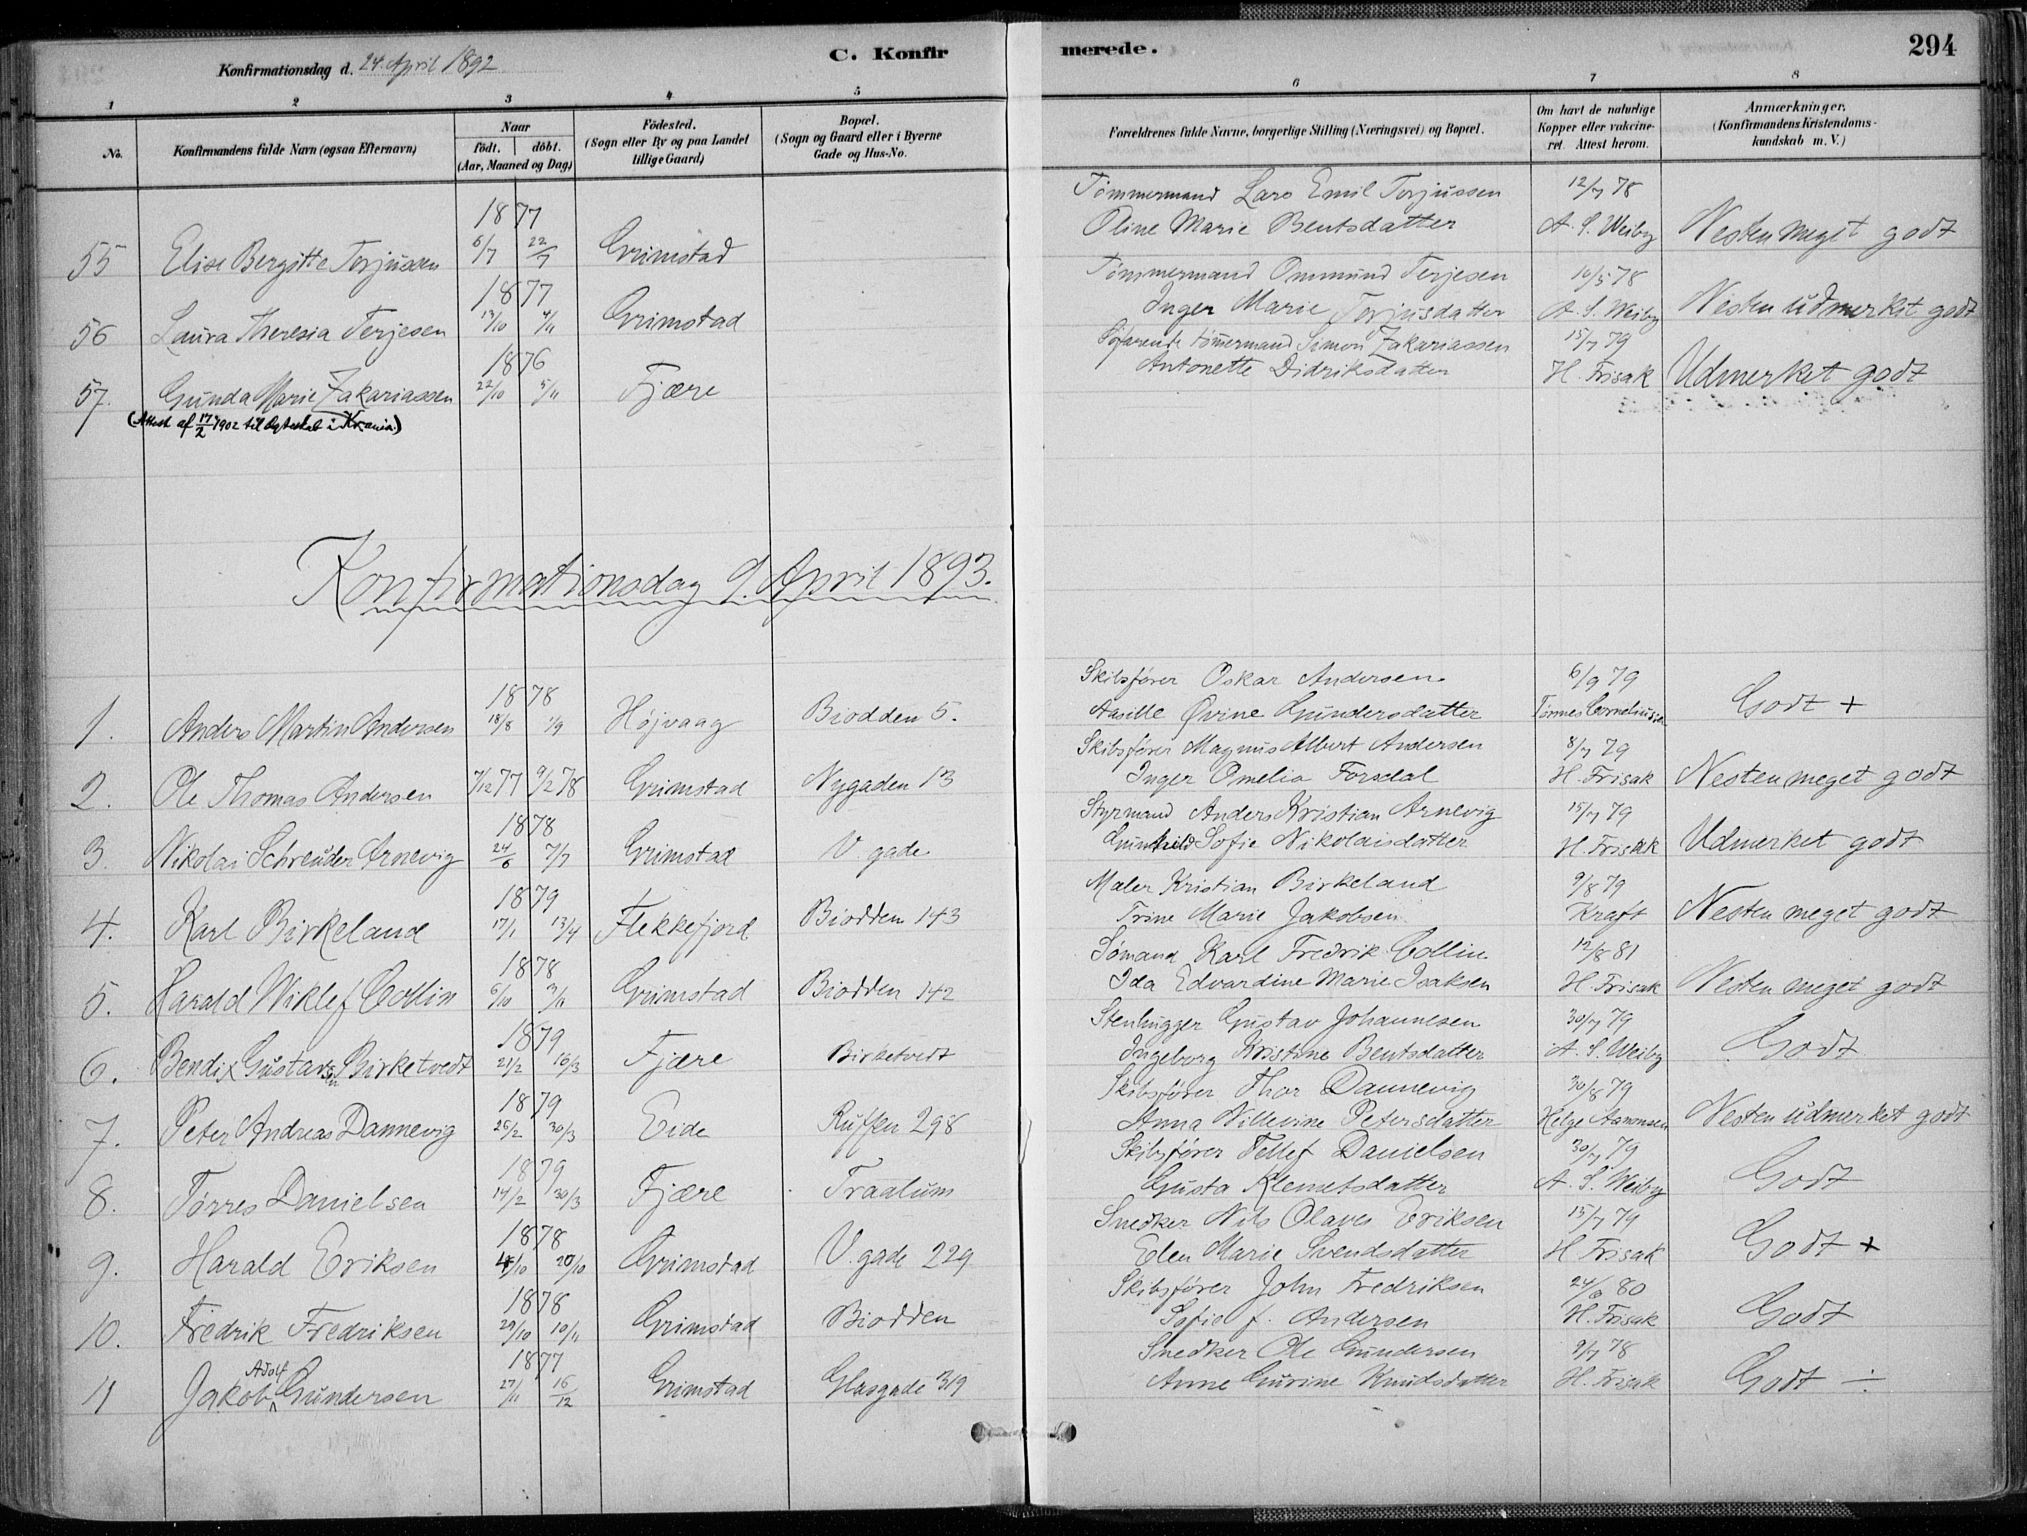 Konfirmationsdag d. 24. April 1892. C. Konfirmerede. 294
1 2 3 4 5 6 7 8
No. Konfirmandens fulde Navn (ogsaa Efternavn) Naar födt. döbt. (Aar, Maaned og Dag) Födested. (Sogn eller By og paa Landet tillige Gaard) Bopæl. (Sogn og Gaard eller i Byerne Gade og Hus-No. Forældrenes fulde Navne, borgerlige Stilling (Næringsvei) og Bopæl. Om havt de naturlige Kopper eller vakcineret. Attest herom. Anmærkninger. (Konfirmandens Kristendomskundskab m. V.)
1877 Tømmermand Lars Emil Torjussen 12/7 78
55 Elise Bergitte Torjussen 6/7 22/7 Grimstad Oline Marie Bentsdatter A. S. Weiby Nesten meget godt
1877 Tømmermand Ommund Terjesen 10/5 78
56 Laura Theresia Terjesen 13/10 4/11 Grimstad Inger Marie Torjusdatter A. S. Weiby Nesten udmerket godt
1876 Søfarende tømmermand Simon Zakariassen 15/7 79
57. Gunda Marie Zakariassen 22/10 5/11 Fjære Antonette Didriksdatter H. Frisak Udmerket godt
(Attest af 17/2 1902 til Ægteskab i Krania.)
Konfirmationsdag 9. April 1893.
1878 Skibsfører Oskar Andersen 6/9 79
1. Anders Martin Andersen 18/8 1/9 Højvaag Biodden 5. Aasille Øvine Gundersdatter Tønnes Corneliussen Godt +
Skibsfører Magnus Albert Andersen 8/7 79
2. Ole Thomas Andersen 7/12 77 9/2 78 Grimstad Nygaden 13 Inger Omelia Forsdal H. Frisak Nesten meget godt
1878 Styrmand Anders Kristian Arnevig 15/7 79
3. Nikolai Schreuder Arnevig 24/6 7/7 Grimstad V. gade Gunhild Sofie Nikolaisdatter H. Frisak Udmerket godt
1879 Maler Kristian Birkeland 9/8 79
4. Karl Birkeland 17/1 13/4 Flekkefjord Biodden 143 Trine Marie Jakobsen Kraft Nesten meget godt
1878 Sømand Karl Fredrik Collin 12/8 81
5. Harald Wiklef Collin 6/10 3/11 Grimstad Biodden 142 Ida Edvardine Marie Isaksen H. Frisak Nesten meget godt
1879 Stenhugger Gustav Johannesen 30/7 79
6. Bendix Gustavsen Birketvedt 21/2 16/3 Fjære Birketvedt Ingeborg Kristine Bentsdatter A. S. Weiby Godt
1879 Skibsfører Thor Dannevig 30/8 79
7. Peter Andreas Dannevig 25/2 30/3 Eide Ruffen 298 Anna Villevine Petersdatter Helge Asmonsen Nesten udmerket godt
1879 Skibsfører Tellef Danielsen 30/7 79
8. Tørres Danielsen 14/2 30/3 Fjære Traalum Gusta Klemetsdatter A. S. Weiby Godt
1878 Snedker Nils Olaves Eriksen 15/7 79
9. Harald Eriksen 4/10 20/10 Grimstad V. gade 229 Elen Marie Svendsdatter H Frisak Godt +
1878 Skibsfører John Fredriksen 24/8 80
10. Fredrik Fredriksen 29/10 10/11 Grimstad Biodden Sofie f. Andersen H. Frisak Godt
1877 Snedker Ole Gundersen 9/7 78
11 Jakob Adolf Gundersen 27/11 16/12 Grimstad Glasgade 319 Anne Gurine Knudsdatter H. Frisak Godt ÷